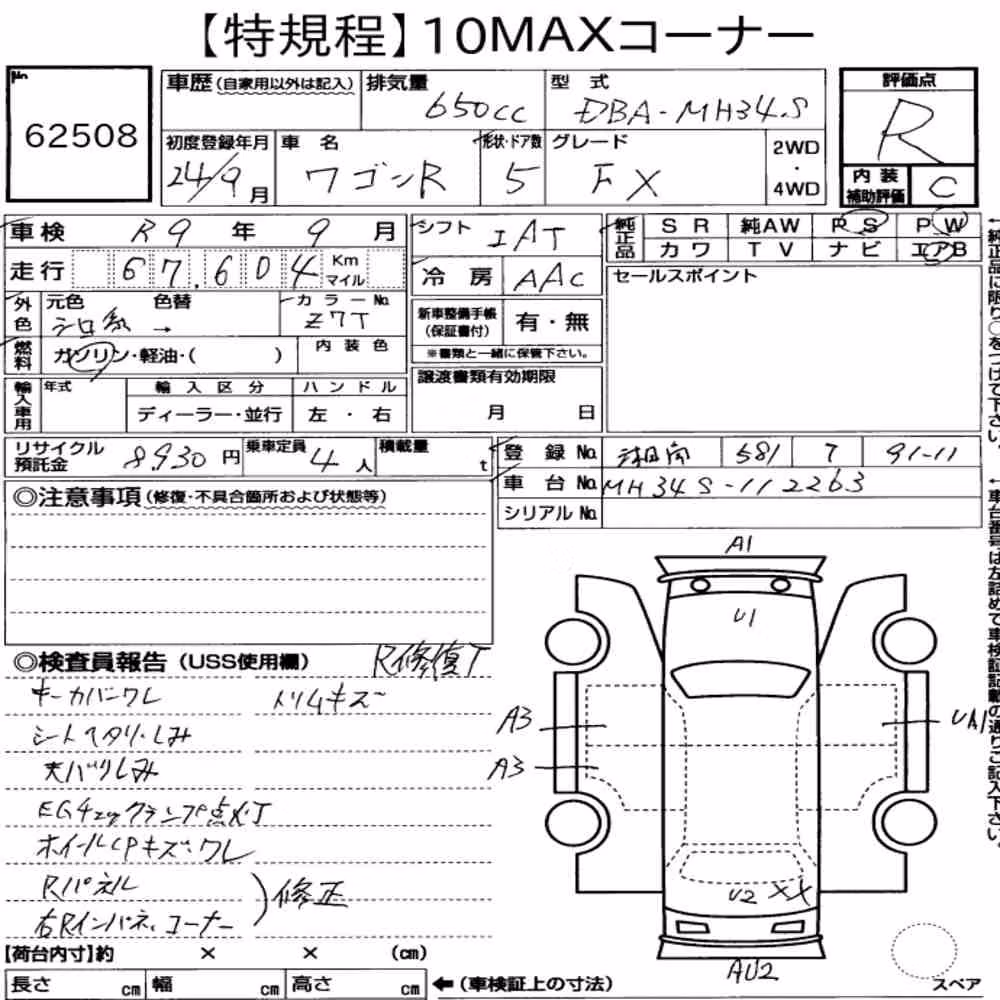 【特規程】10MAXコーナー
No.
62508
車歴(自家用以外は記入)
排気量
650cc
型 式
DBA-MH34S
評価点
R
初度登録年月
24/9月
車 名
ワゴンR
形状・ドア数
5
グレード
FX
2WD
・
4WD
内 装
補助評価
C
車検 R9 年 9 月
シフト IAT
純正品
S R 純AW P S P W
カワ T V ナビ エアB
走行 67,604 Km
マイル
冷 房 AAC
セールスポイント
外色
元色 色替
シロ系 →
カラーNo.
Z7T
新車整備手帳
(保証書付)
有・無
※書類と一緒に保管下さい。
燃料
ガソリン・軽油・( )
内 装 色
輸入車用
年式
輸 入 区 分
ハ ン ド ル
ディーラー・並行
左 ・ 右
譲渡書類有効期限
月 日
リサイクル
預託金
8930 円
乗車定員
4 人
積載量
t
登 録 No. 湘南 581 91-11
車 台 No. MH34S-112263
シリアル No.
◎注意事項(修復・不具合箇所および状態等)
◎検査員報告(USS使用欄)
R修復丁
キーカバーワレ トリムキズ
シートヘタリ・しみ
天バリしみ
EGチェックランプ点メ丁
ホイールCPキズ・ワレ
Rパネル
右Rインパネ、コーナー
修正
A1
U1
A3
A3
UA1
U2 XX
AU2
スペア
【荷台内寸】約 × × (cm)
長さ cm 幅 cm 高さ cm
←(車検証上の寸法)
←純正品に限り○をつけて下さい。
←車台番号は左詰めで車検証記載の通りご記入下さい。